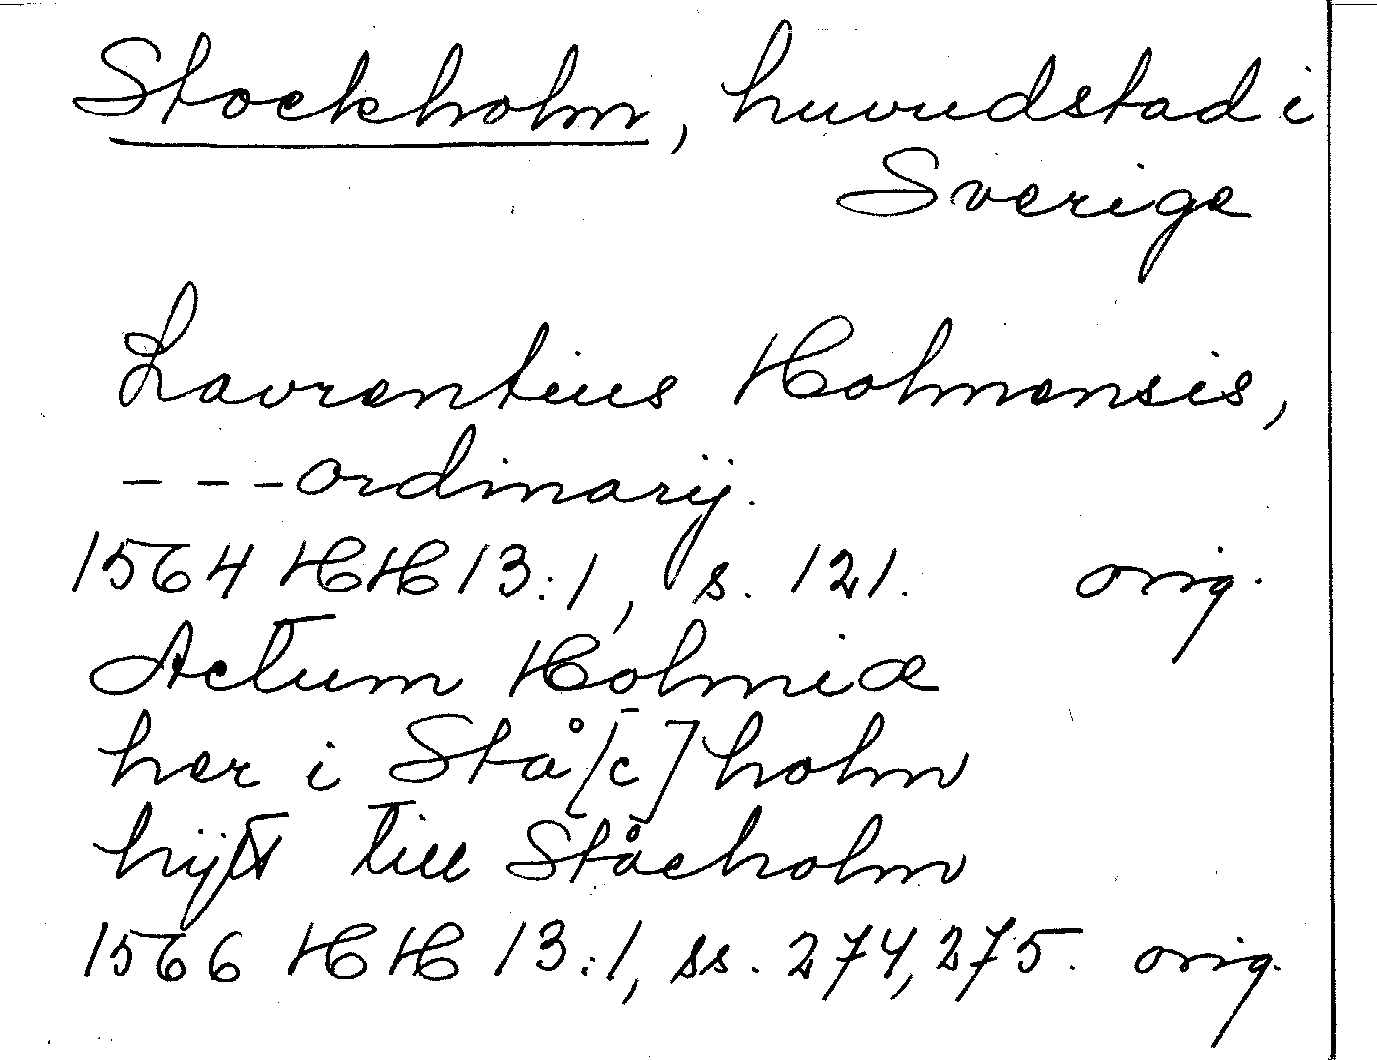 Stockholm, huvudstad i
Sverige
Lavrentius Holmensis,
---ordinarij.
1564 HH 13:1, s. 121. orig.
Actum Holmiæ
her i Stå[c]holm
hijtt till Ståcholm
1566 HH 13:1, ss. 274, 275. orig.